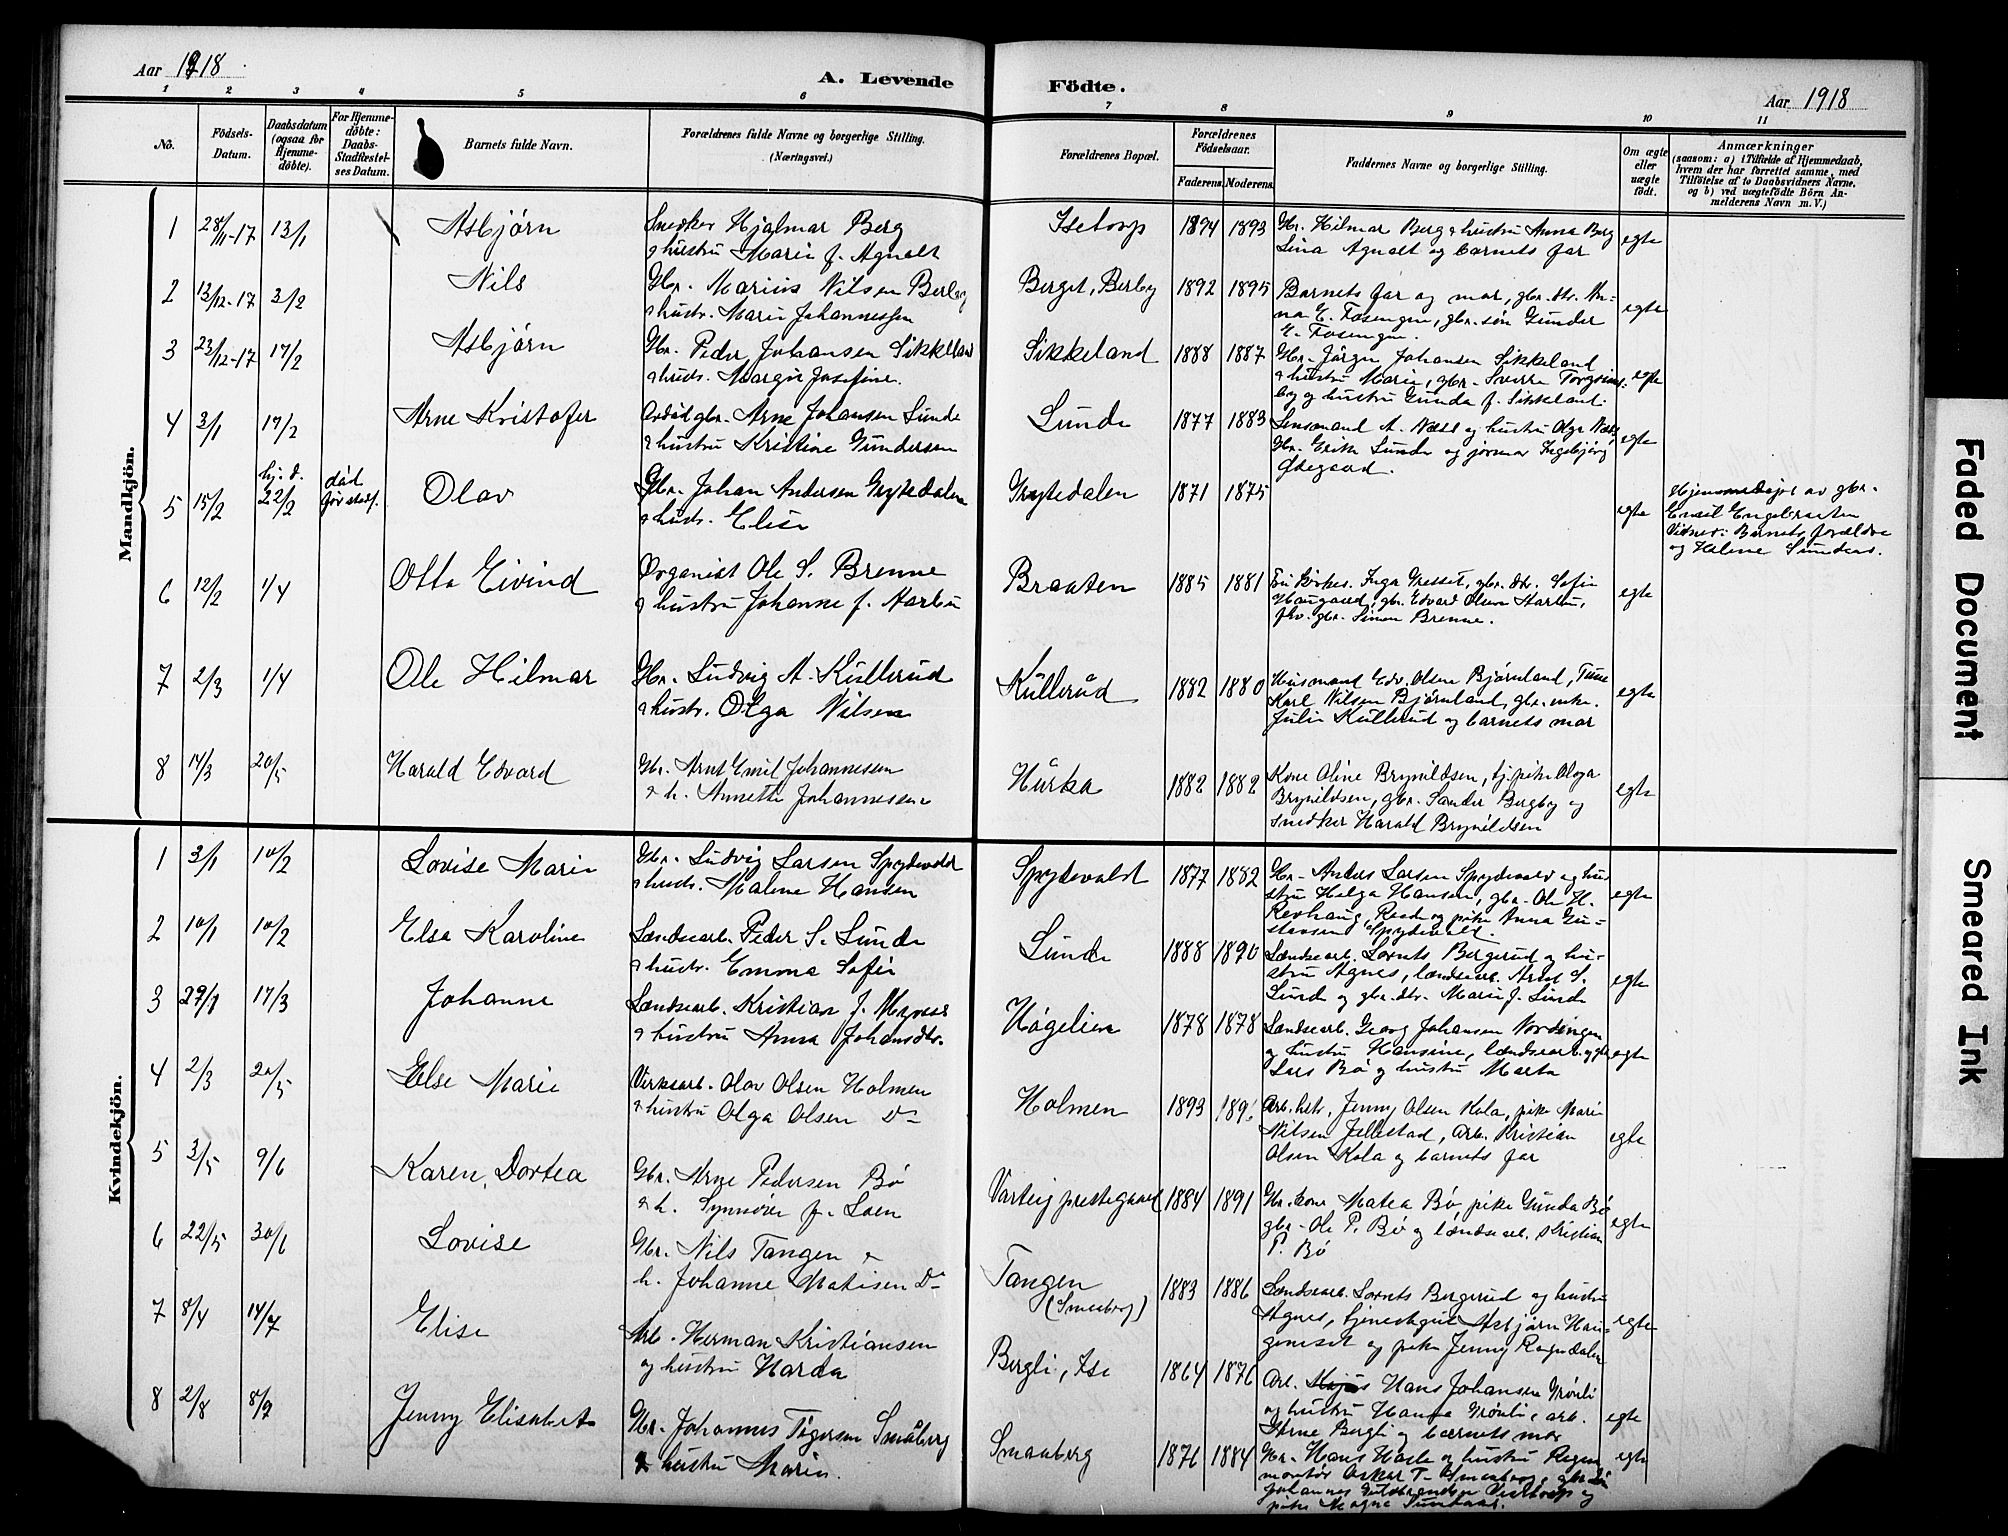 Aar 1918.
A. Levende Födte.
Aar 1918
1 2 3 4 5 6 7 8 9 10 11
Nō.
Födsels-Datum.
Daabsdatum (ogsaa for Hjemme-döbte).
For Hjemme-döbte: Daabs-Stadfæstel-ses Datum.
Barnets fulde Navn.
Forældrenes fulde Navne og borgerlige Stilling. (Næringsvei.)
Forældrenes Bopæl.
Forældrenes Födselsaar.
Faderens.
Moderens.
Faddernes Navne og borgerlige Stilling.
Om ægte eller uægte födt.
Anmærkninger
(saasom: a) i Tilfælde af Hjemmedaab,
hvem der har forrettet samme, med
Tilföielse af to Daabsvidners Navne,
og b) ved uægtefödte Börn An-
melderens Navn m. V.)
Mandkjön.
1 28/11-17 13/1 Asbjørn
Snedker Hjalmar Berg
& hustru Marie f. Agnalt
Isetorp 1894 1893
Gbr. Hilmar Berg & hustru Anna Berg
Lina Agnalt og barnets far
egte
2 13/12-17 3/2 Nils
Gbr. Marius Nilsen Berby
& hustr. Marie Johannessen
Berget, Berby 1892 1895
Barnets far og mor, gbr. dtr. An-
na E. Fosengen, gbr. søn Gunder
E. Fosengen.
egte
3 23/12-17 17/2 Asbjørn
Gbr. Peder Johansen Sikkeland
& hustr. Margit Josefine.
Sikkeland 1888 1887
Gbr. Jørgen Johansen Sikkeland
& hustru Marie, gbr. Sverre
by og hustru Gunda f. Sikkeland.
egte
4 3/1 17/2 Arne Kristofer
gbr. Arne Johansen Lunde
& hustru Kristine Gundersen
Lunde 1877 1883
Lensmand A. og hustru Olga
Gbr. Erik Lunde og jormor Ingebjørg
Ødegaard.
egte
5 15/2 hj. d. 22/2 død før stadf. Olav
Gbr. Johan Andersen Grytedalen
& hustr. Elise
Grytedalen 1871 1875
egte
Hjemmedøpt av gbr.
Emil Engebretsen
Vidner: Barnets forældre
og Helene
6 12/2 1/4 Otto Eivind
Organist Ole S. Brenne
& hustru Johanne f. Aarbu
Braaten 1885 1881
Inga Gresset, gbr. dtr. Sofie
Haugaard, gbr. Edvard Olsen Aarbu,
fhv. gbr. Simen Brenne.
egte
7 2/3 1/4 Ole Hilmar
Gbr. Ludvig A. Kullerud
& hustr. Olga Nilsen
Kullerud 1882 1880
Husmand Edv. Olsen Bjørnland, Tune
Karl Nilsen Bjørnland, gbr. enke.
Julie Kullerud og barnets mor
egte
8 17/3 20/5 Harald Edvard
Gbr. Arnt Emil Johannessen
& h. Annette Johannessen
Hurka 1882 1882
Kone Oline Brynildsen, tj. pike Olga
Brynildsen, gbr. Sander Bergby og
snedker Harald Brynildsen
egte
Kvindekjön.
1 3/1 10/2 Lovise Marie
Gbr. Ludvig Larsen Spydevold
& hustr. Malene Hansen
Spydevoldt 1877 1882
Gbr. Anders Larsen Spydevold og hu-
stru Helga Hansen, gbr. Ole H.
Revhaug, Raade og pike Anna Gu-
stavsen Spydevold.
egte
2 10/1 10/2 Elsa Karoline
Landsearb. Peder S. Lunde
& hustr. Emma Sofie
Lunde 1888 1890
Landsearb. Lornts Bergerud og hu-
stru Agnes, landsearb. Arnt S.
Lunde og gbr. dtr. Marie J. Lunde
egte
3 29/1 17/3 Johanne
Landsearb. Kristian J.
& hustru Anna Johansdtr.
Høgelien 1878 1878
Landsearb. Georg Johansen Nordengen
og hustru Hansine, landsearb. og gbr
Lars Bø og hustru Marta
egte
4 2/3 20/5 Else Marie
Virksarb. Olav Olsen Holmen
& hustru Olga Olsen Do
Holmen 1893
Arb. hstr. Jenny Olsen Kola, pike Marie
Nilsen Jellestad, arb. Kristian
Olsen Kola og barnets far
egte
5 3/5 9/6 Karen, Dortea
Gbr. Arne Pedersen Bø
& h. Synnøve f. Loen
Varteig prestegaard 1884 1891
Gbr. kone Matea Bø, pike Gunda Bø
gbr. Ole P. Bø og landsearb. Kristian
P. Bø
egte
6 22/5 30/6 Lovise
Gbr. Nils Tangen &
h. Johanne Matisen Do
Tangen (Smaaberg) 1883 1886
Landsearb. Lornts Bergerud og hustru
Agnes, tjenestegut Asbjørn Hau-
geneset og pike Jenny Rogndalen
egte
7 8/4 14/7 Elise
Arb. Herman Kristiansen
og hustru Harda
Bergli, Ise 1864 1876
Arb. Hans Johansen Grønli
og hustru Hanna Grønli, arb.
Sterne Bergli og barnets mor
egte
8 2/8 8/9 Jenny Elisabeth
Gbr. Johannes Tøgersen Smaaberg
& hustru Marie.
Smaaberg 1876 1884
Gbr. Hans Hasle og hustru
montør Oskar T. Smaaberg, gbr.
Johannes Guldbrandsen Visterop og
pike Magna
egte
Faded Document
Smeared Ink